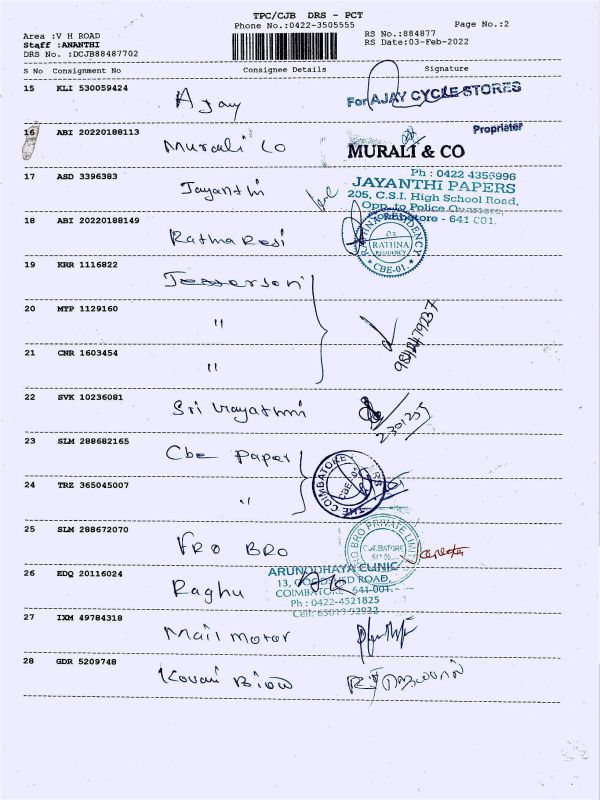 TPC/CJB DRS - PCT
Phone No.:0422-3505555
Page No.:2
Area :V H ROAD
Staff :ANANTHI
DRS No. :DCJB88487702
RS No.:884877
RS Date:03-Feb-2022
S No Consignment No Consignee Details Signature
15 KLI 530059424
Ajay
For AJAY CYCLE STORES
Proprietor
16 ABI 20220188113
Murali Co
MURALI & CO
17 ASD 3396383
Jayanthi
Ph : 0422 4356996
JAYANTHI PAPERS
205, C.S.I. High School Road,
Opp. to Police Quarters,
641 001.
18 ABI 20220188149
Rathna Resi
RATHNA RESIDENCY
03
RATHNA
RESIDENCY
CBE-01.
19 KRR 1116822
20 MTP 1129160
"
21 CNR 1603454
"
22 SVK 10236081
Sri
23 SLM 288682165
Cbe Paper
THE COIMBATORE
CBE-01
24 TRZ 365045007
"
25 SLM 288672070
VRO BRO
BRO PRIVATE LIMITED
COIMBATORE
26 EDQ 20116024
Raghu
ARUNODHAYA CLINIC
ROAD,
COIMBATORE - 641-001.
Ph : 0422-4521825
Cell:
27 IXM 49784318
Mail motor
28 GDR 5209748
Kovai